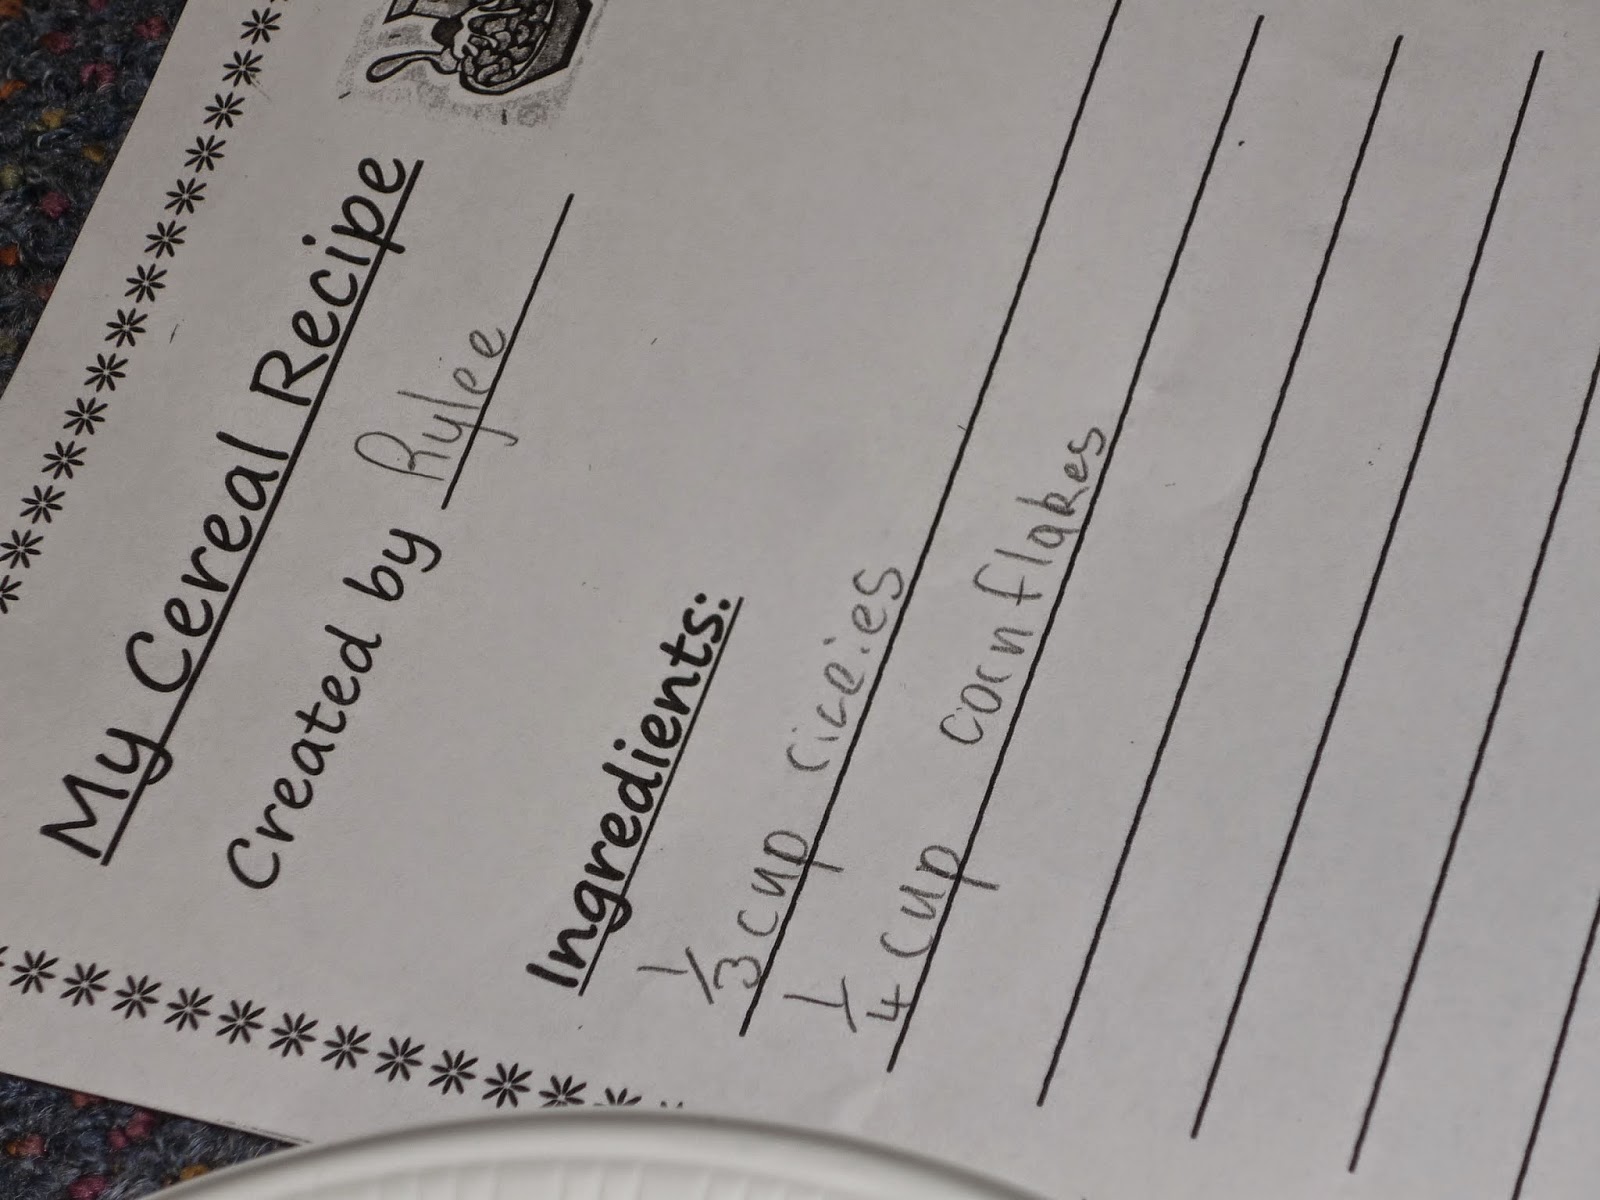 My Cereal Recipe
Created by Rylee
Ingredients:
1/3 cup riceies
1/4 cup cornflakes